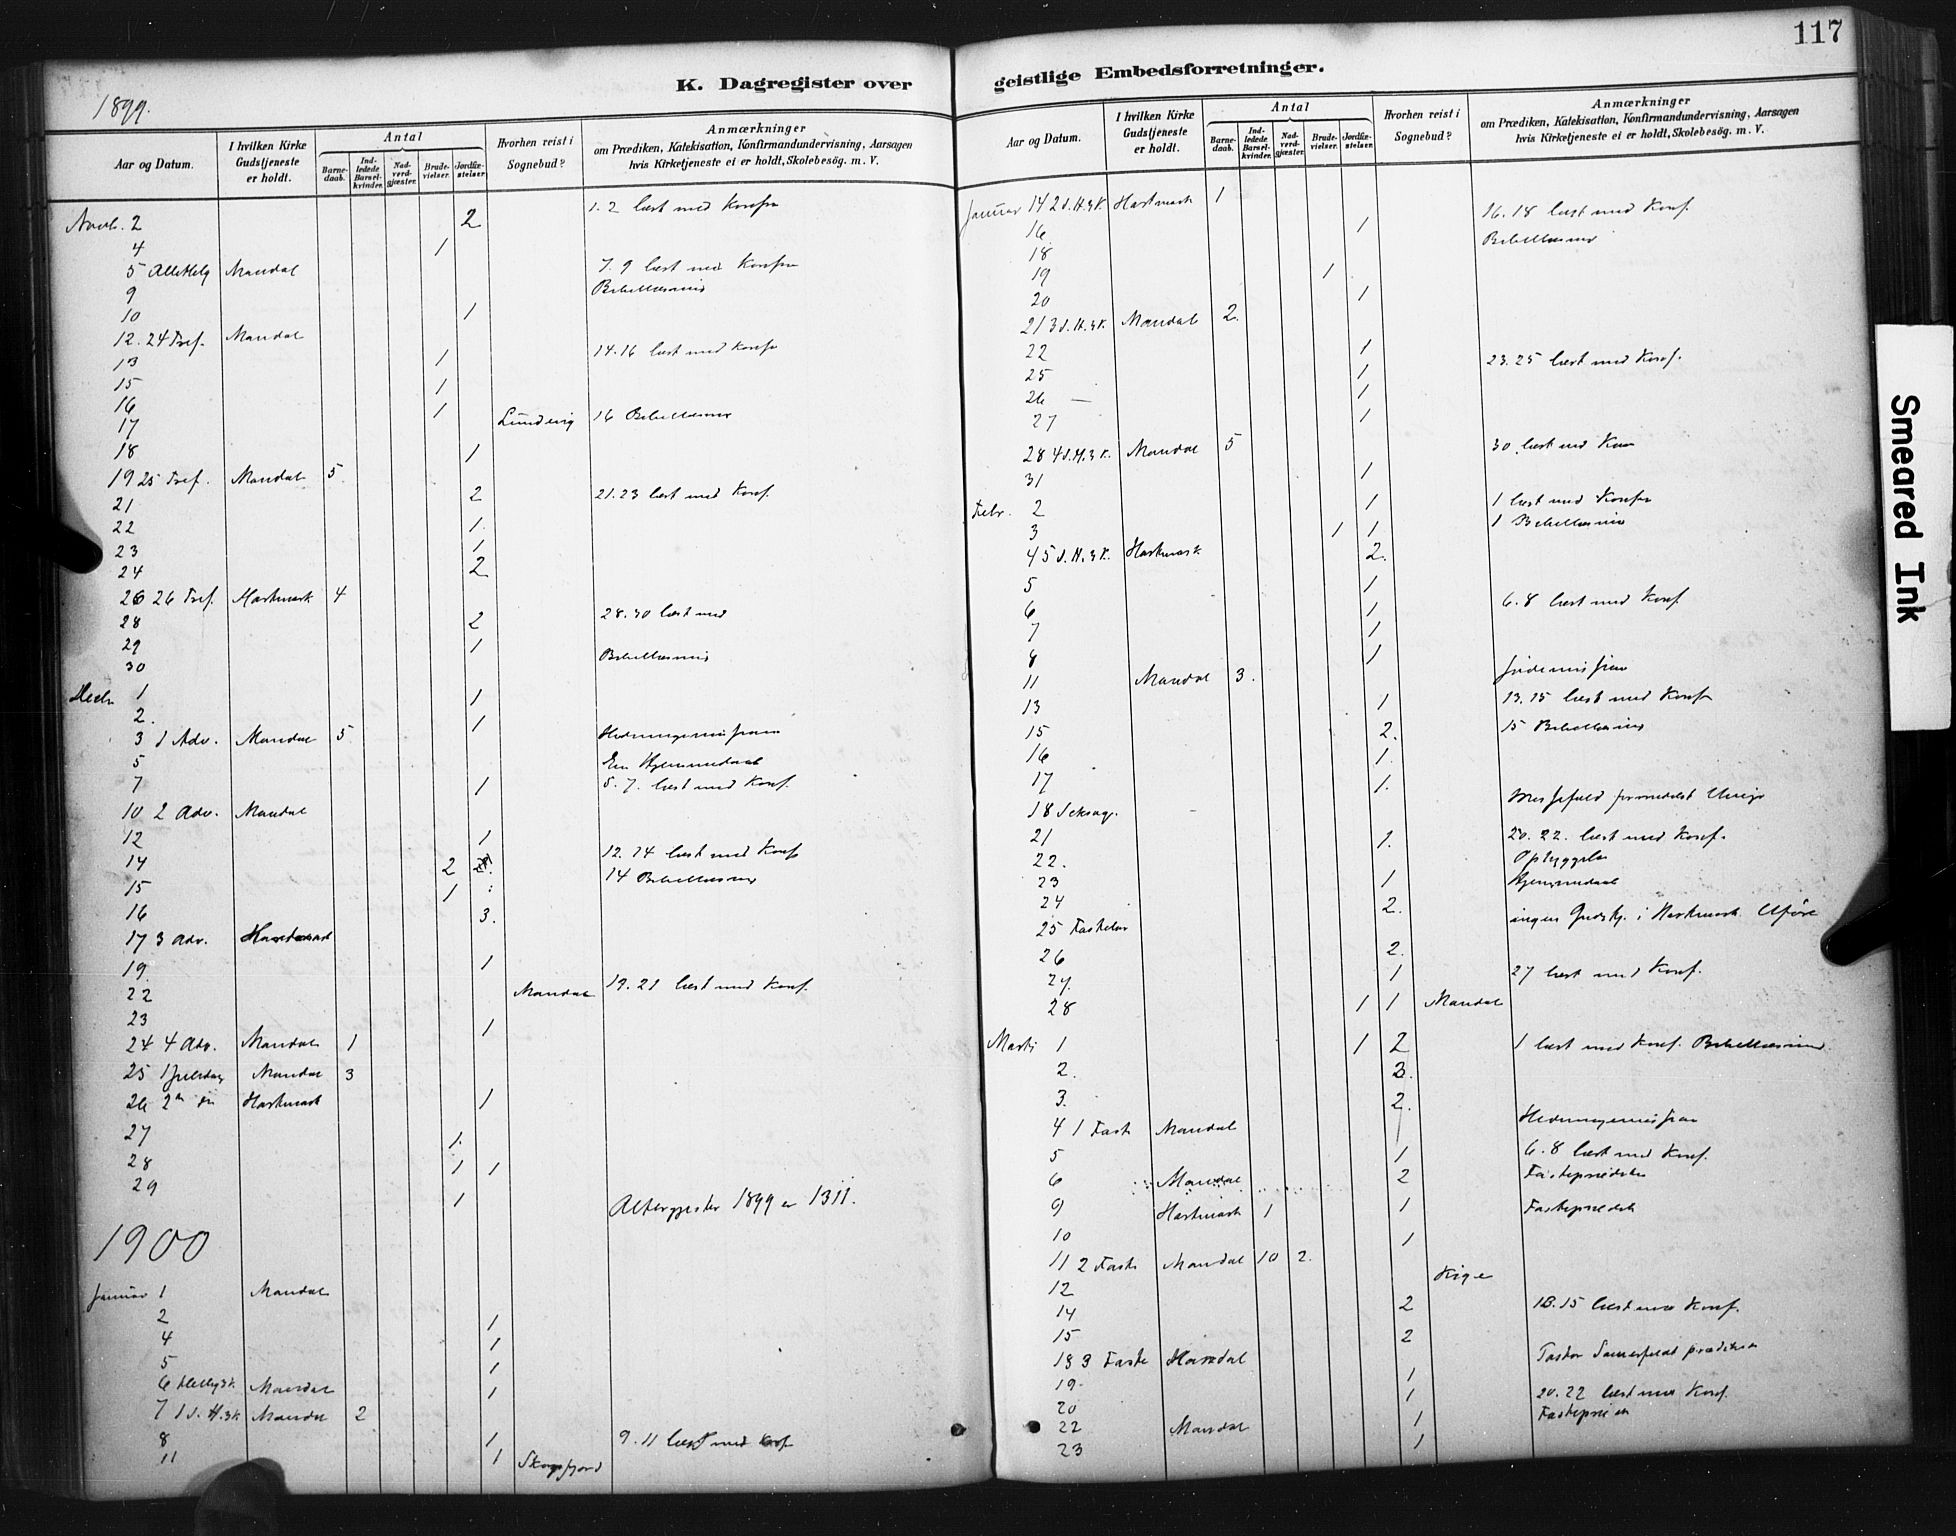 117
K. Dagregister over
1899.
Aar og Datum.
I hvilken Kirke Gudstjeneste er holdt.
Antal
Barnedaab.
Indledede Barselkvinder.
Nadverdgjæster.
Brudevielser.
Jordfæstelser.
Hvorhen reist i Sognebud?
Anmærkninger
om Prædiken, Katekisation, Konfirmandundervisning, Aarsagen
hvis Kirketjeneste ei er holdt, Skolebesög. m. V.
Novb. 2 2 1. 2 læst med Konf
4 1
5 AlleHelg Mandal 7. 9 læst med Konf
9 Bibellæsning
10 1
12. 24 Tref. Mandal
13 1 14. 16 læst med Konf
15 1
16 1
17 Lundevig 16 Bibellæsning
18 1
19 25 Tref. Mandal 5.
21 2 21. 23 læst med Konf.
22 1.
23 1
24 2
26 26 Tref. Hartmark 4
28 2 28. 30 læst med
29 1
30 Bibellæsning
Decbr 1 1
2. 1
3 1 Adv. Mandal 5. Hedningemission
5
7 1 5. 7. læst med Konf.
10 2 Adv. Mandal
12 1
14 2 12. 14 læst med Konf
15 1 14 Bibellæsning
16 3.
17 3 Adv. Hartmark
19. 1
22 Mandal 19. 21 læst med Konf.
23 1
24 4 Adv. Mandal 1
25 1 Juledag Mandal 3
26 2 Hartmark 1
27 1.
28 1 1
29 1
Altergjester 1899 er 1311.
1900
Januar 1 Mandal
2 1
4 1
5 1
6 Mandal 1
7 1 S. H.3K. Mandal 2
8 1 9. 11 læst med Konf
11 1 Skogsfjord
geistlige Embedsforretninger.
Aar og Datum.
I hvilken Kirke Gudstjeneste er holdt.
Antal
Barnedaab.
Indledede Barselkvinder.
Nadverdgjæster.
Brudevielser.
Jordfæstelser.
Hvorhen reist i Sognebud?
Anmærkninger
om Prædiken, Katekisation, Konfirmandundervisning, Aarsagen
hvis Kirketjeneste ei er holdt, Skolebesög. m. V.
Januar 14 2 S. H.3K. Hartmark 1
16. 1 16. 18 læst med Konf.
18 Bibellæsning
19 1
20 1
21 3 S. H.3K. Mandal 2.
22 1 23. 25 læst med Konf.
25 1
26 — 1
27 1
28 4 S. H.3K. Mandal 5 30. læst med
31 1
Febr. 2 1 1 læst med Konf
3 1 1 1 Bibellæsning
4 5 S. H.3K. Hartmark 2.
5 1
6 1 6. 8 læst med Konf.
7 1
8 1
11 Mandal 3. Jødemission
13 1 13. 15 læst med Konf
15 2. 15 Bibellæsning
16 1.
17 1.
18 Seksag. Messefald formedelst
21 1. 20. 22. læst med Konf.
22. Opbyggelse
23 1
24 2.
25 Fastelav ingen Gudstj. i Hartmark. Uføre
26 2.
27. 1 27 læst med Konf.
28 1 1 Mandal
Marts 1 1 2 1 læst med Konf. Bibellæsning
2. 3.
3. 2.
4 1 Fast Mandal 1 Hedningemission
5 1 6. 8 læst med Konf.
6 Mandal 2
9 Hartmark 1 1
10 1
11 2 Faste Mandal 10 2.
12 Kige
14 2 13. 15 læst med Konf.
15 2
18 3 Faste Mandal Pastor prædiken
19. 1
20 1 20. 22 læst med Konf.
22 Mandal 1
23 1
Smeared Ink